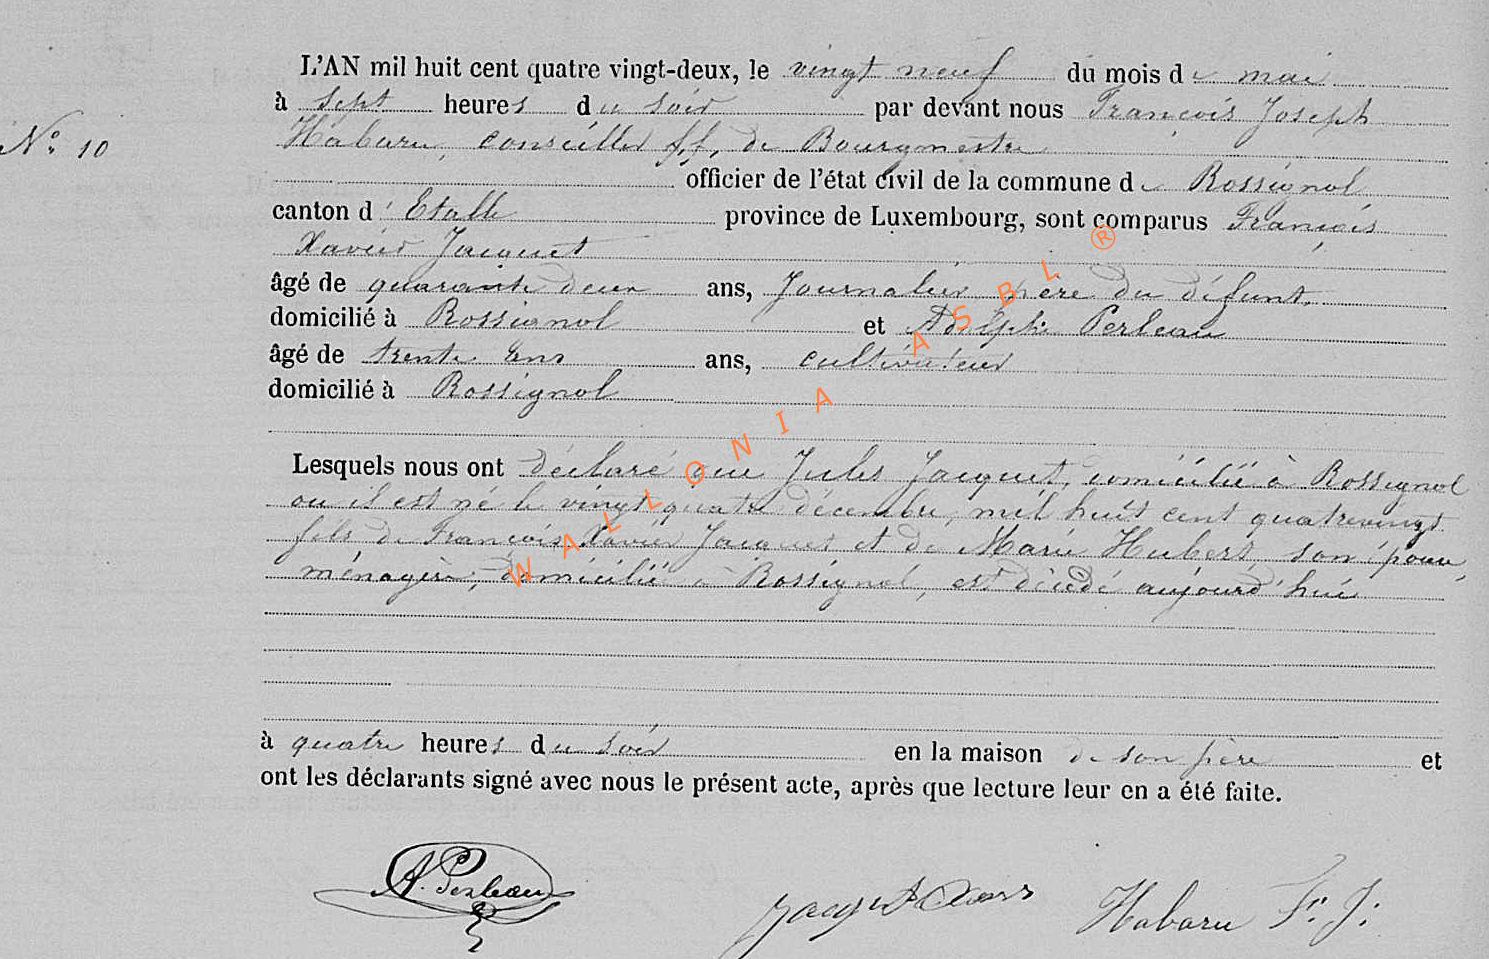 L'AN mil huit cent quatre vingt-deux, le vingt neuf du mois de mai
à sept heures du soir par devant nous François Joseph
N° 10
Habaru, conseiller ff, de Bourgmestre
officier de l'état civil de la commune de Rossignol
canton d'Etalle province de Luxembourg, sont comparus François
Xavier Jacquet
âgé de quarante deux ans, Journalier père du défunt,
domicilié à Rossignol et Adolphe Perleau
âgé de trente ans ans, cultivateur
domicilié à Rossignol
Lesquels nous ont déclaré que Jules Jacquet, domicilié à Rossignol
ou il est né le vingt quatre décembre, mil huit cent quatrevingt
fils de François Xavier Jacquet et de Marie Hubert, son épouse,
ménagère, domicilié à Rossignol, est décédé aujourd'hui
à quatre heures du soir en la maison de son père et
ont les déclarants signé avec nous le présent acte, après que lecture leur en a été faite.
A. Perleau Jacquet Habaru Fs J:
WALLONIA ASBL ®